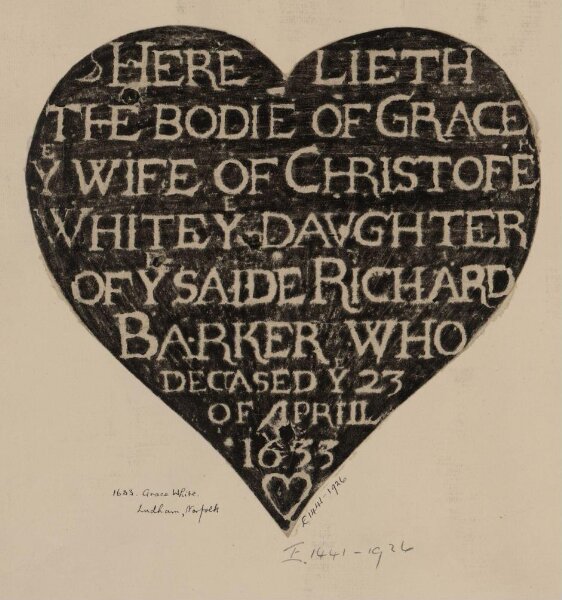 HERE LIETH
THE BODIE OF GRACE
Yᴱ WIFE OF CHRISTOFEᴿ
WHITE Yᴱ DAVGHTER
OF Yᴱ SAIDE RICHARD
BARKER WHO
DECASED Yᴱ 23
OF APRIILL
1633
1633. Grace White.
Ludham, Norfolk
E.1441-1926
E.1441-1926